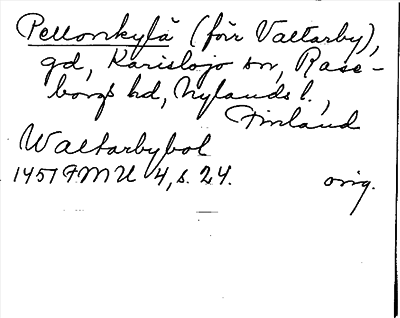 Pellonkylä (förr Valtarby),
gd, Karislojo sn, Rase-
borgs hd, Nylands l.,
Finland
Waltarbybol
1451 FMU 4, s. 24. orig.